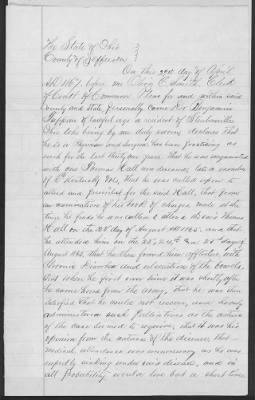 The State of Ohio
County of Jefferson
On this 22nd day of April
AD 1867, before me C. Smith Clerk
of Court of Common Pleas for and within said
County and State, personally came Dr Benjamin
of lawful age a resident of Steubenville
Ohio who being by me duly sworn declares that
he is a Physician and Surgeon has been practicing as
such for the last thirty one years that he was acquainted
with one Thomas Hall now deceased, late a member
of Kentucky Vols, that he was called upon to
attend and prescribe for the said Hall, that from
an examination of his book of charges made at the
time he finds he was called to attend &
Hall on the day of August AD 1865 and that
he attended him on the 23", 24" and day of
August 1865, that he then found him afflicted with
Chronic Diarrhea and ulceration of the bowels,
that when he first saw him it was shortly after
he came home from the army, that he was then
satisfied that he could not recover, and simply
administered such Palliatives as the nature
of the case seemed to require, that it was his
opinion from the nature of the disease that
medical attendance was unnecessary as he was
rapidly sinking under his disease, and in
all probability would live but a short time